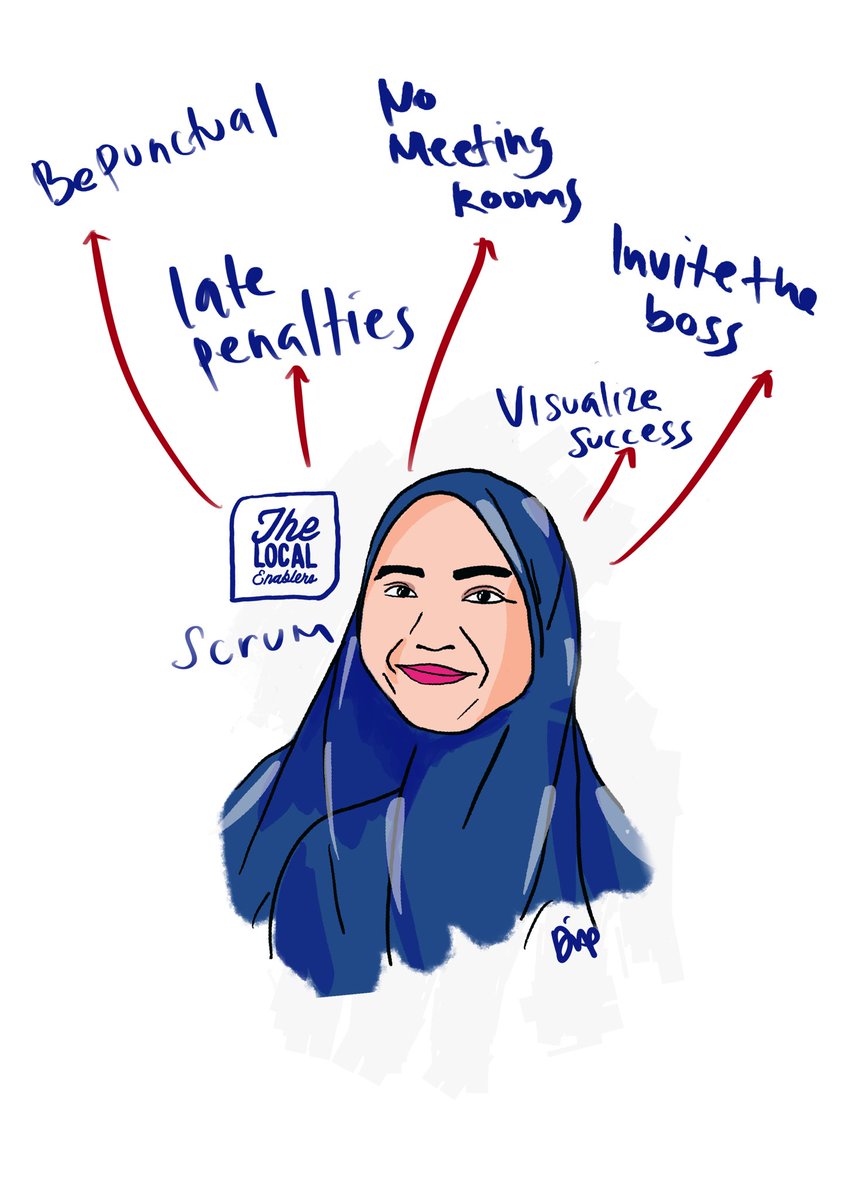 Be Punctual
No
Meeting
Rooms
late
penalties
Invite the
boss
Visualize
success
The
LOCAL
Enablers
Scrum